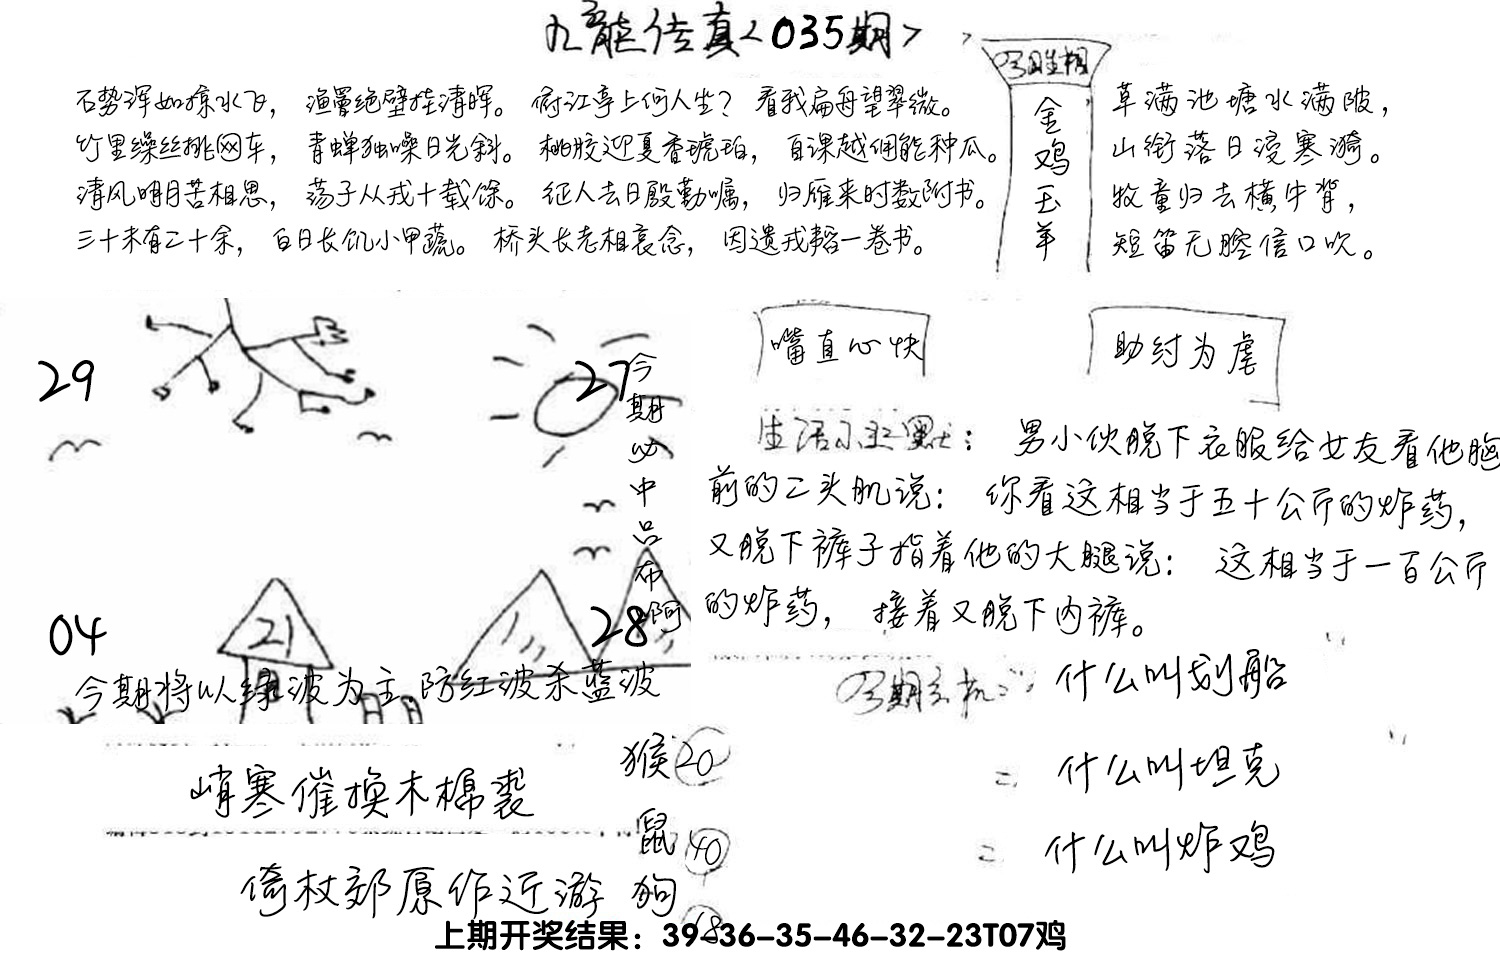 九龙传真<035期>
石势浑如掠水飞，渔罾绝壁挂清晖。俯江亭上何人坐？看我扁舟望翠微。
竹里缲丝挑网车，青蝉独噪日光斜。桃胶迎夏香琥珀，自课越佣能种瓜。
清风明月苦相思，荡子从戎十载馀。征人去日殷勤嘱，归雁来时数附书。
三十未有二十余，白日长饥小甲蔬。桥头长老相哀念，因遗戎韬一卷书。
今期生相
金鸡玉羊
草满池塘水满陂，
山衔落日浸寒漪。
牧童归去横牛背，
短笛无腔信口吹。
29
27
今期必中吕布阿
04
21
28
今期将以绿波为主防红波杀蓝波
嘴直心快
助纣为虐
生活小幽默：男小伙脱下衣服给女友看他胸
前的二头肌说：你看这相当于五十公斤的炸药，
又脱下裤子指着他的大腿说：这相当于一百公斤
的炸药，接着又脱下内裤。
今期玄机：什么叫划船
什么叫坦克
什么叫炸鸡
峭寒催换木棉裘
倚杖郊原作近游
猴20
鼠40
狗18
上期开奖结果：39-36-35-46-32-23T07鸡